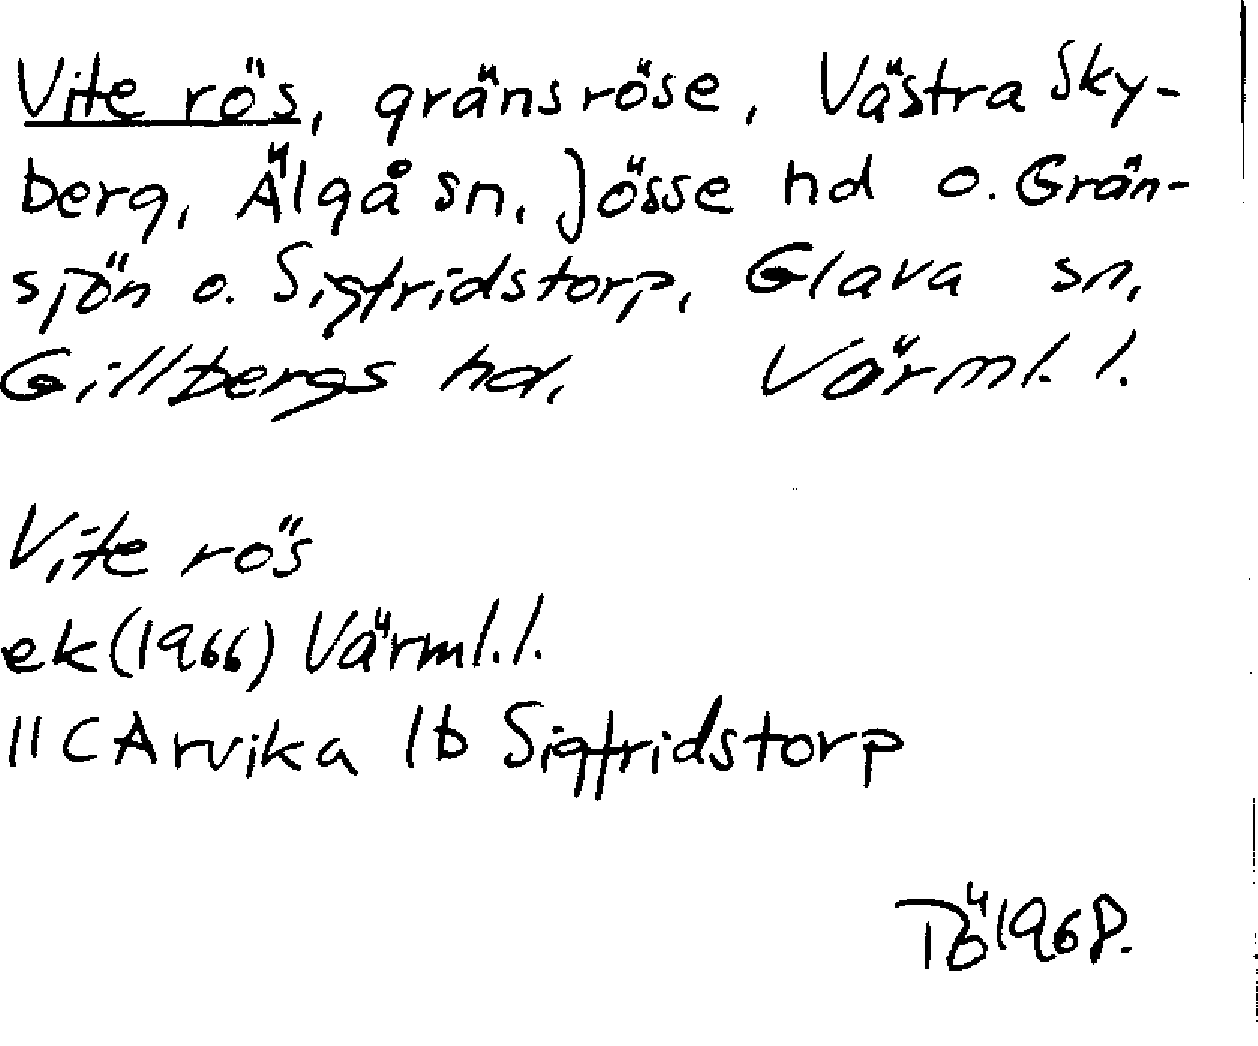 Vite rös, gränsröse, Västra Sky-
berg, Älgå sn, Jösse hd o. Grän-
sjön o. Sigfridstorp, Glava sn,
Gillbergs hd. Värml. l.
Vite rös
ek (1966) Värml. l.
11 C Arvika 1b Sigfridstorp
1968.